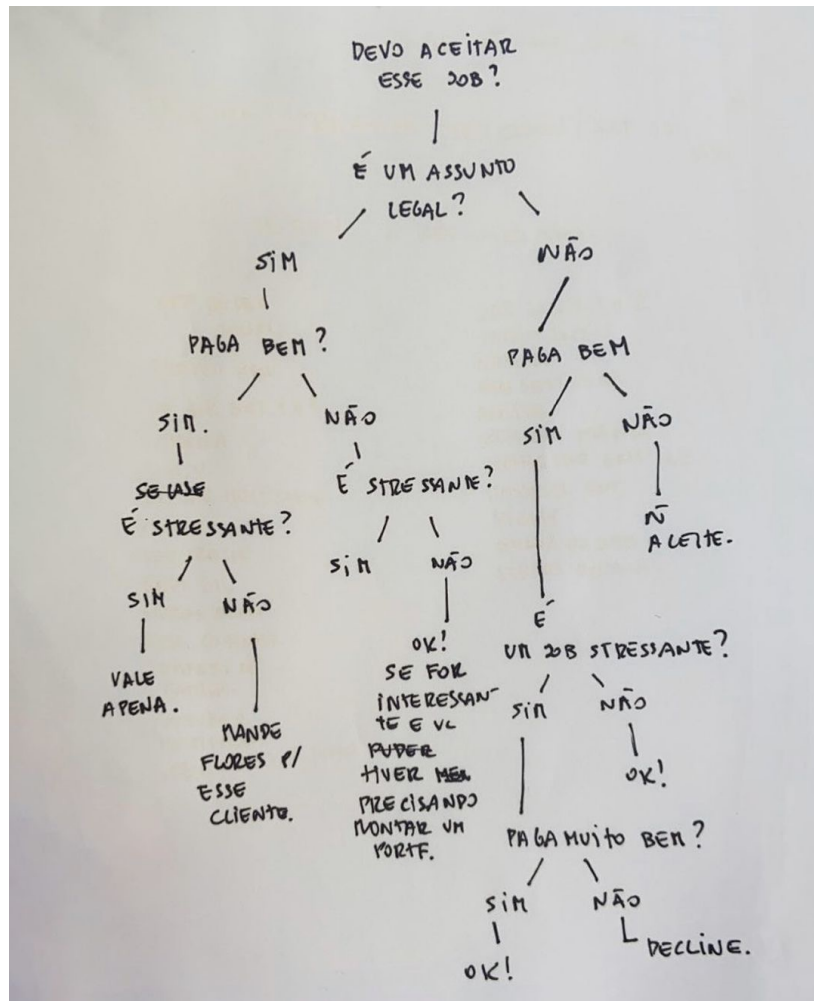 DEVO ACEITAR
ESSE JOB?
É UM ASSUNTO
LEGAL?
SIM
NÃO
PAGA BEM?
PAGA BEM
SIM.
NÃO
SIM
NÃO
SE CASE
É STRESSANTE?
É STRESSANTE?
Ñ
ACEITE.
SIM
NÃO
SIM
NÃO
VALE
APENA.
MANDE
FLORES P/
ESSE
CLIENTE.
OK!
SE FOR
INTERESSAN-
TE E VC
PUDER
TIVER
PRECISANDO
MONTAR UM
PORTF.
É
UM JOB STRESSANTE?
SIM
NÃO
OK!
PAGA MUITO BEM?
SIM
NÃO
OK!
DECLINE.